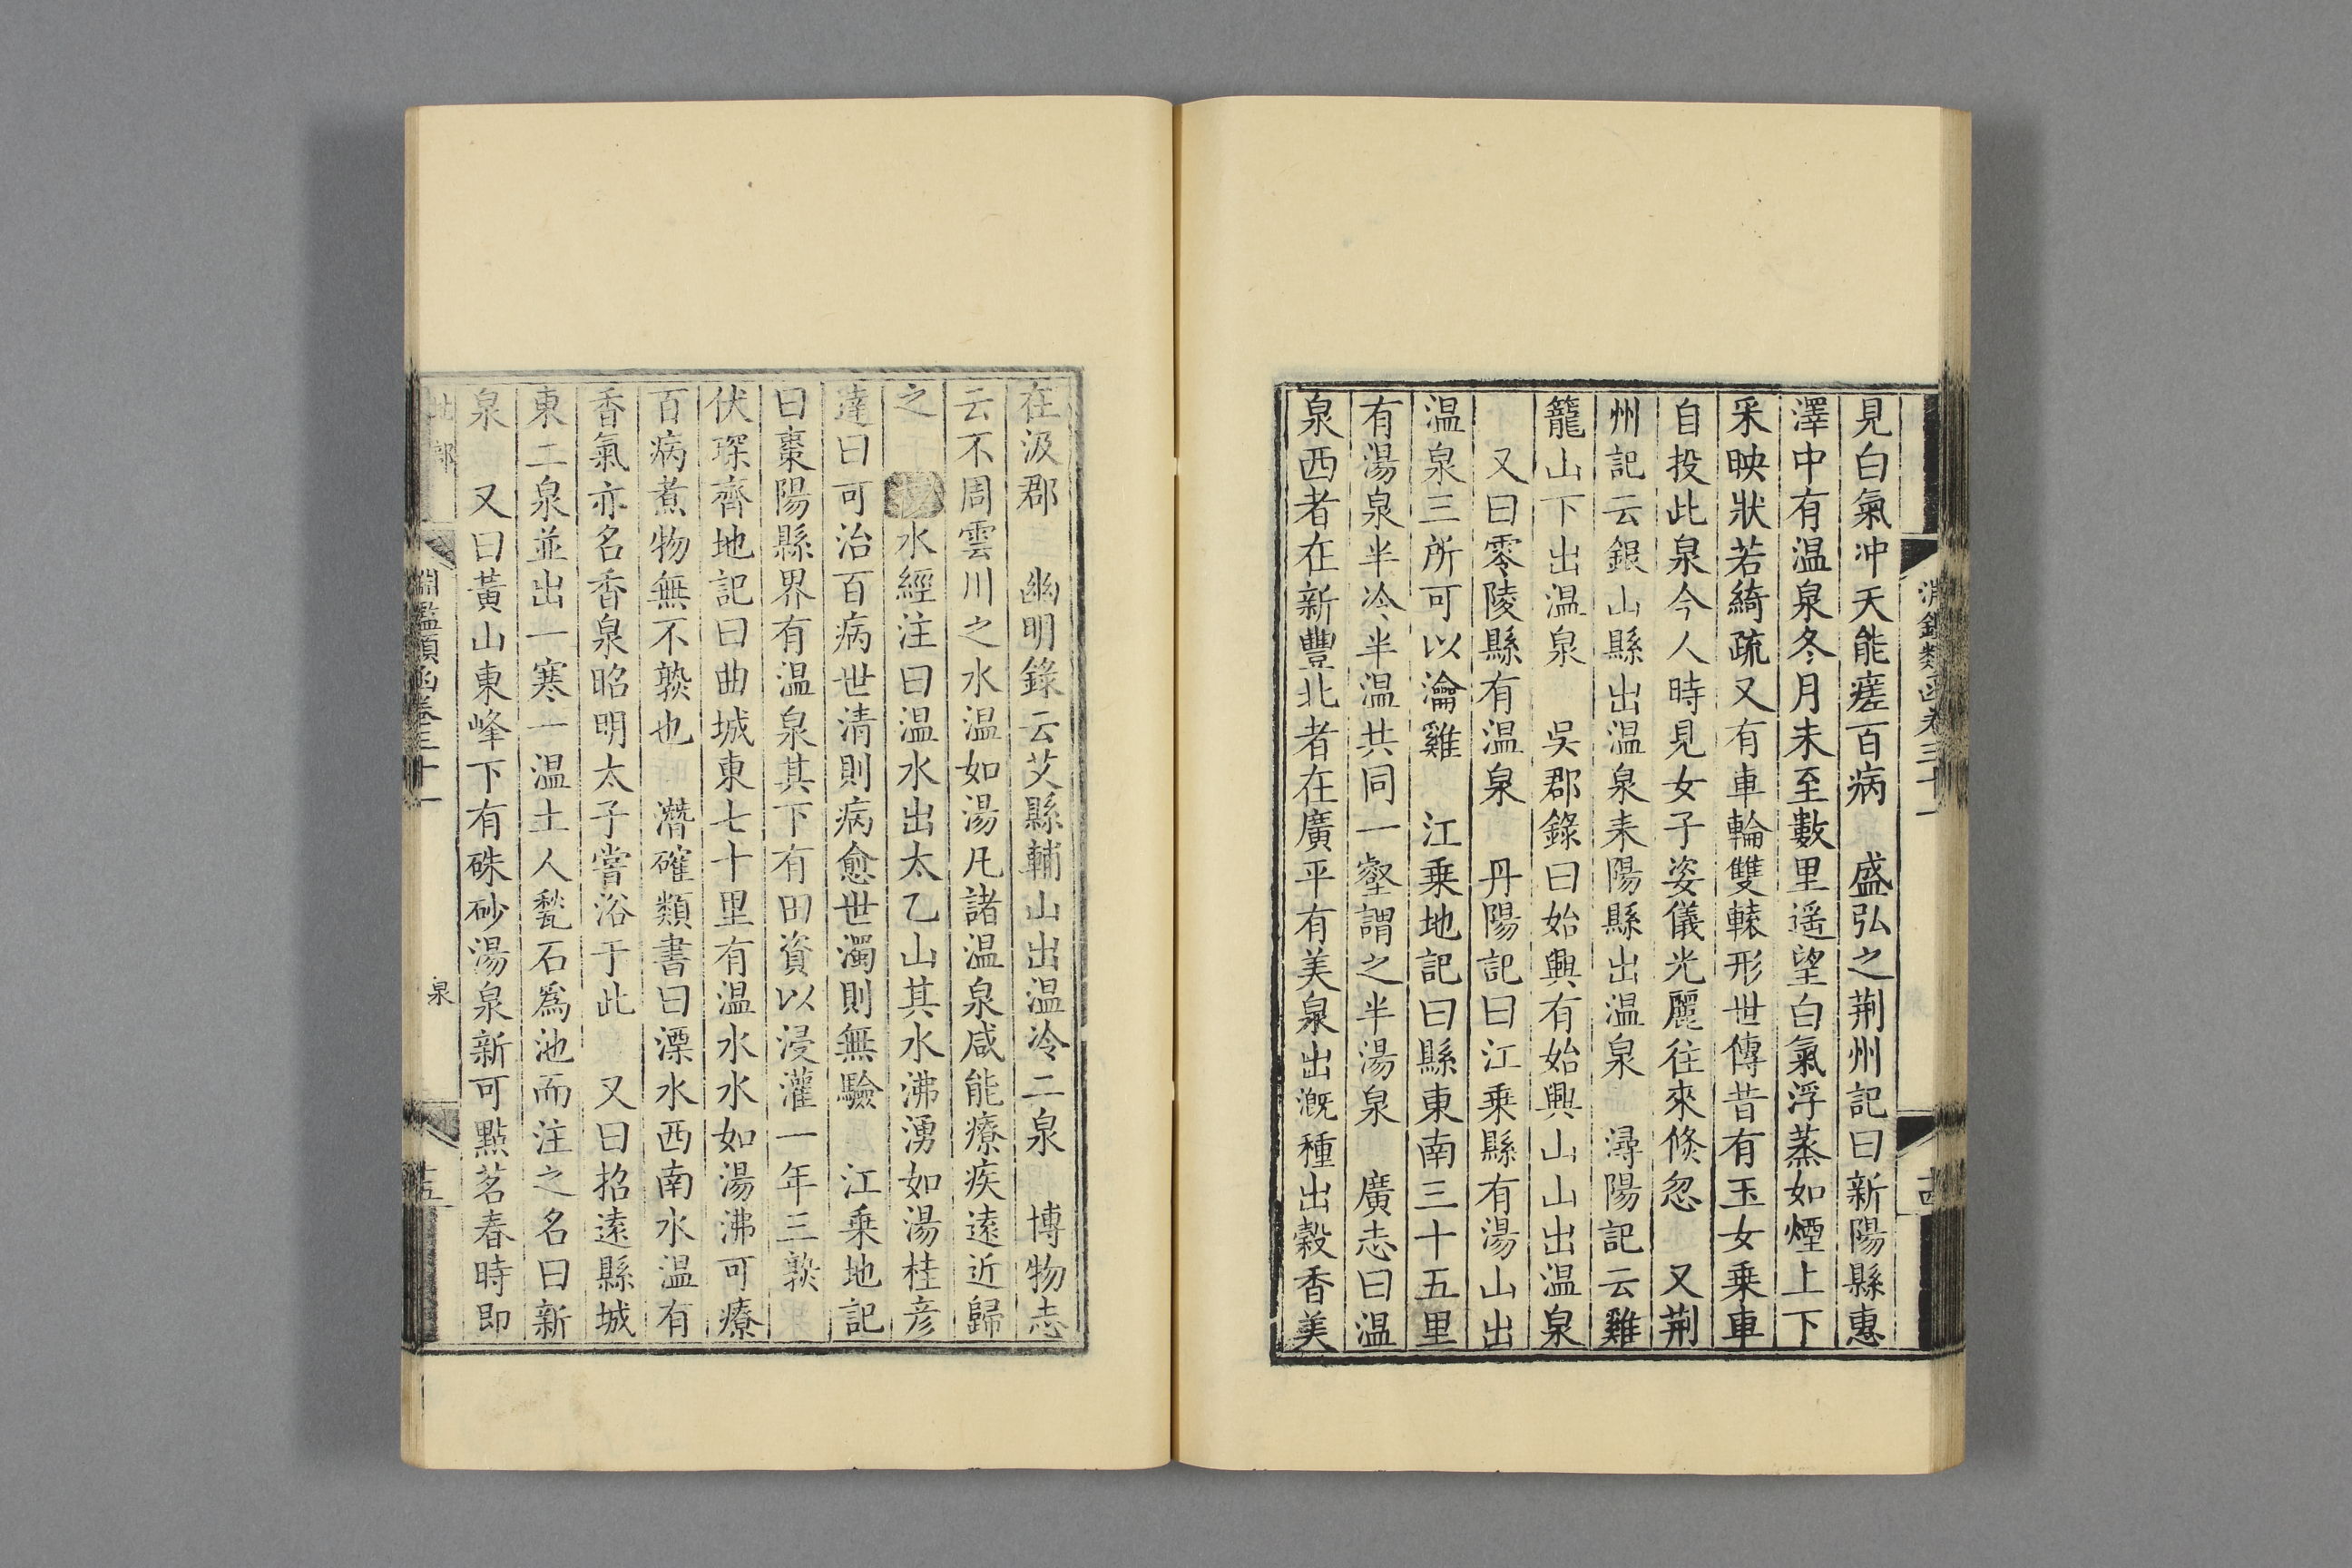 淵鑑類函卷三十一
十四
見白氣冲天能瘥百病　盛弘之荆州記曰新陽縣惠
澤中有温泉冬月未至數里遥望白氣浮蒸如煙上下
采映狀若綺疏又有車輪雙轅形世傳昔有玉女乗車
自投此泉今人時見女子姿儀光麗往來倐忽　又荆
州記云銀山縣出温泉耒陽縣出温泉　潯陽記云雞
籠山下出温泉　吳郡錄曰始興有始興山山出温泉
又曰零陵縣有温泉　丹陽記曰江乗縣有湯山出
温泉三所可以瀹雞　江乗地記曰縣東南三十五里
有湯泉半冷半温共同一壑謂之半湯泉　廣志曰温
泉西者在新豐北者在廣平有美泉出溉種出穀香美
在汲郡　幽明錄云艾縣輔山出温冷二泉　博物志
云不周雲川之水温如湯凡諸温泉咸能療疾遠近歸
之　水經注曰温水出太乙山其水沸湧如湯桂彦
達曰可治百病世清則病愈世濁則無驗　江乗地記
曰棗陽縣界有温泉其下有田資以浸灌一年三𤍨
伏琛齊地記曰曲城東七十里有温水水如湯沸可療
百病煮物無不𤍨也　潛確類書曰溧水西南水温有
香氣亦名香泉昭明太子嘗浴于此　又曰招遠縣城
東二泉並出一寒一温土人甃石爲池而注之名曰新
泉　又曰黃山東峰下有硃砂湯泉新可點茗春時即
部
淵鑑類函卷三十一
泉
十五